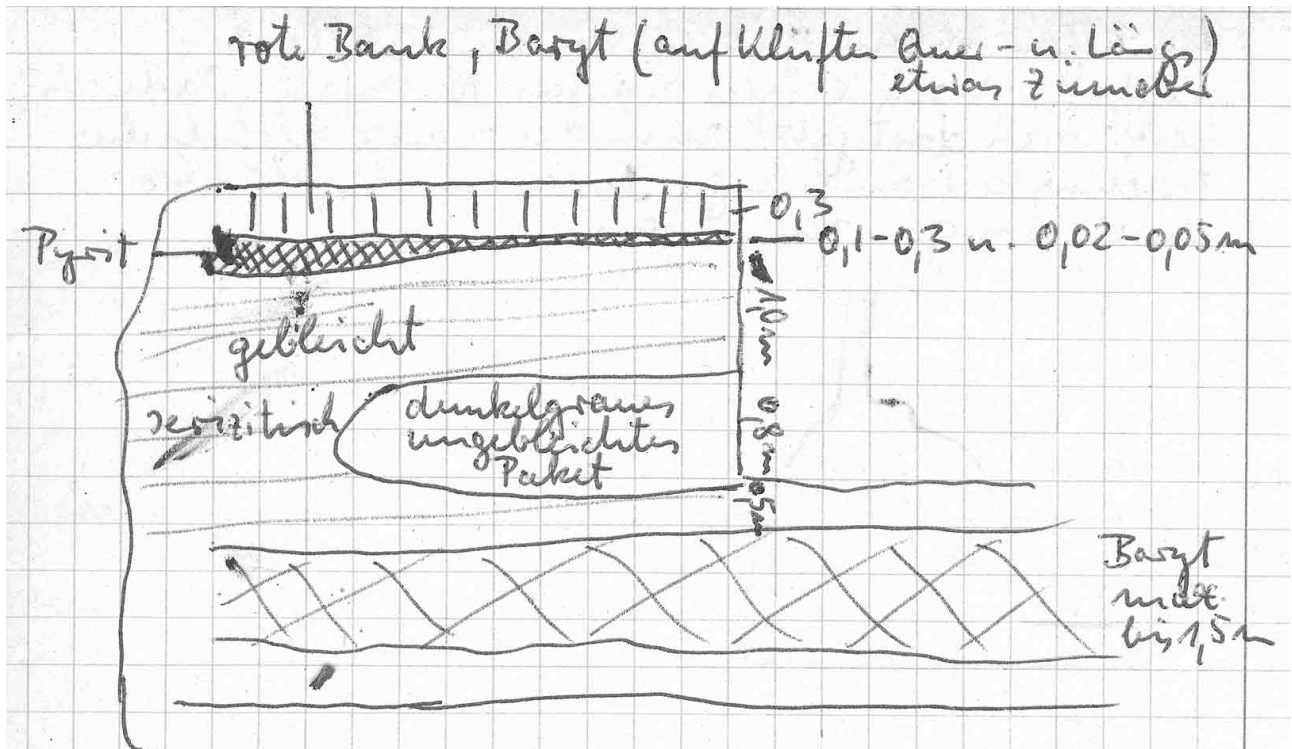 rote Bank, Baryt (auf Klüften Quer- u. Längs)
etwas Zinnober
0,3
Pyrit
0,1-0,3 u. 0,02-0,05m
1,0m
gebleicht
serizitisch
dunkelgraues
ungebleichtes
Paket
0,8m
0,5m
Baryt
max.
bis 1,5m